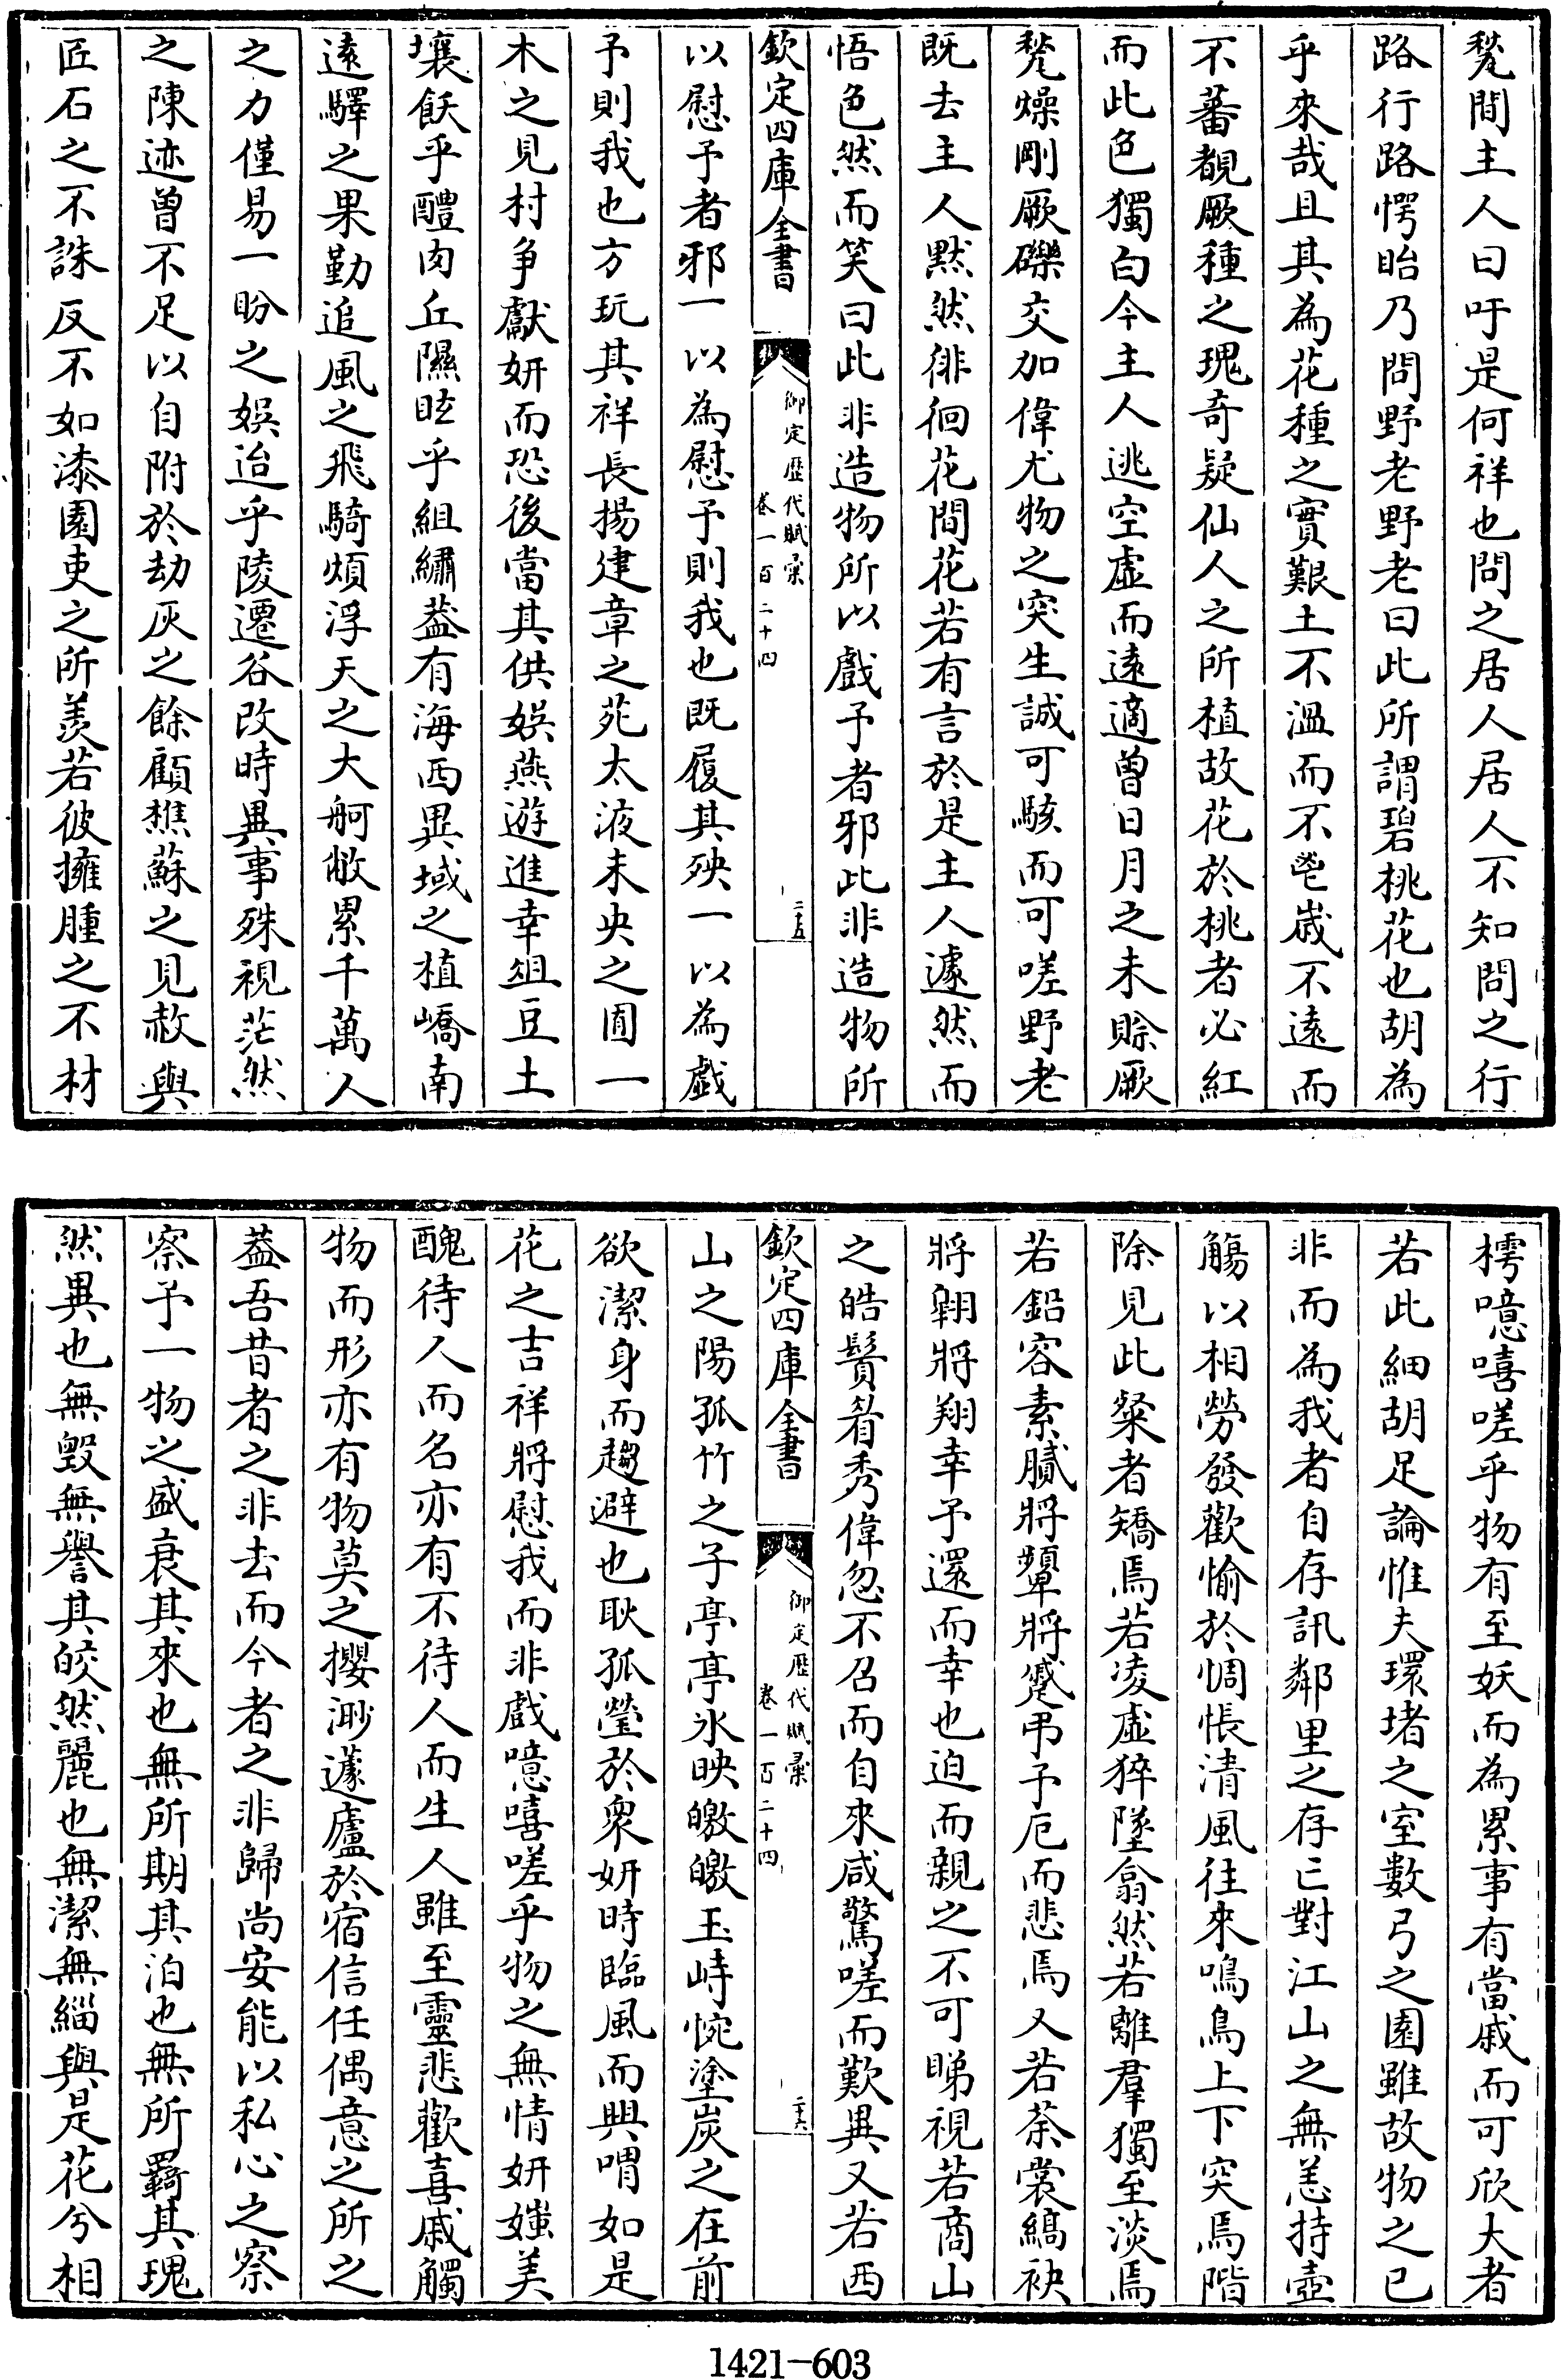 甃間主人曰吁是何祥也問之居人居人不知問之行
路行路愕眙乃問野老野老曰此所謂碧桃花也胡為
乎來哉且其為花種之實艱土不溫而不苞歲不遠而
不蕃覩厥種之瑰奇疑仙人之所植故花於桃者必紅
而此色獨白今主人逃空虛而遠適曾日月之未賒厥
甃燥剛厥礫交加偉尤物之突生誠可駭而可嗟野老
既去主人默然徘徊花間花若有言於是主人遽然而
悟色然而笑曰此非造物所以戲予者邪此非造物所
欽定四庫全書
御定歷代賦彙
卷一百二十四
二十五
以慰予者邪一以為慰予則我也既履其殃一以為戲
予則我也方玩其祥長揚建章之苑太液未央之囿一
木之見村爭獻妍而恐後當其供娛燕遊進幸俎豆土
壤飫乎醴肉丘隰眩乎組繡葢有海西異域之植嶠南
遠驛之果勤追風之飛騎煩浮天之大舸敝累千萬人
之力僅易一盼之娛迨乎陵遷谷改時異事殊視茫然
之陳迹曾不足以自附於劫灰之餘顧樵蘇之見赦與
匠石之不誅反不如漆園吏之所羨若彼擁腫之不材
樗噫嘻嗟乎物有至妖而為累事有當戚而可欣大者
若此細胡足論惟夫環堵之室數弓之園雖故物之已
非而為我者自存訊鄰里之存亡對江山之無恙持壺
觴以相勞發歡愉於惆悵清風往來鳴鳥上下突焉階
除見此粲者矯焉若凌虛猝墜翕然若離羣獨至淡焉
若鉛容素膩將顰將蹙弔予厄而悲焉又若荼裳縞袂
將翺將翔幸予還而幸也迫而親之不可睇視若商山
之皓鬢眉秀偉忽不召而自來咸驚嗟而歎異又若西
欽定四庫全書
御定歷代賦彙
卷一百二十四
二十六
山之陽孤竹之子亭亭氷映皦皦玉峙惋塗炭之在前
欲潔身而趨避也耿孤瑩於衆妍時臨風而興喟如是
花之吉祥將慰我而非戲噫嘻嗟乎物之無情妍媸美
醜待人而名亦有不待人而生人雖至靈悲歡喜戚觸
物而形亦有物莫之攖渺蘧廬於宿信任偶意之所之
葢吾昔者之非去而今者之非歸尚安能以私心之察
察予一物之盛衰其來也無所期其泊也無所羇其瑰
然異也無毀無譽其皎然麗也無潔無緇與是花兮相
1421-603